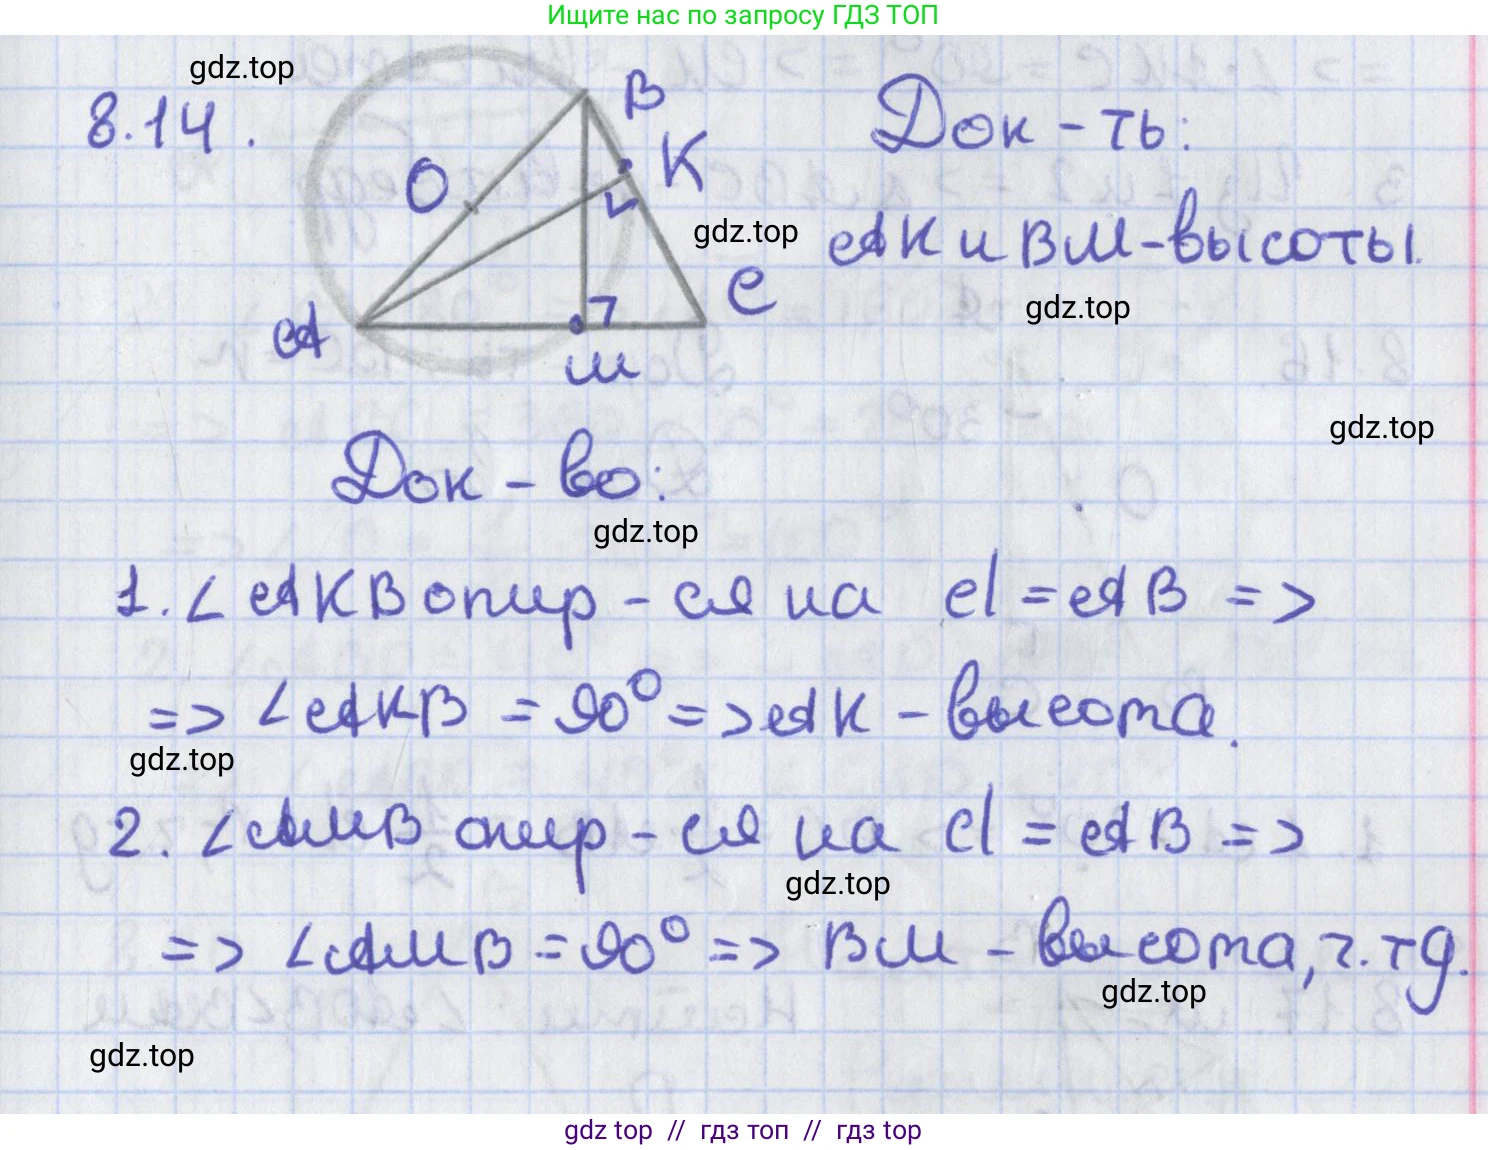 Ищите нас по запросу ГДЗ ТОП
gdz.top
8.14.
B
O
K
Док-ть:
gdz.top
AK и BM-высоты.
C
gdz.top
A
M
gdz.top
Док-во:
gdz.top
1. ∠AKB опир-ся на d=AB =>
=> ∠AKB = 90° => AK - высота.
gdz.top
2. ∠AMB опир-ся на d = AB =>
gdz.top
=> ∠AMB = 90° => BM - высота, ч.тд.
gdz.top
gdz.top
gdz top // гдз топ // гдз top